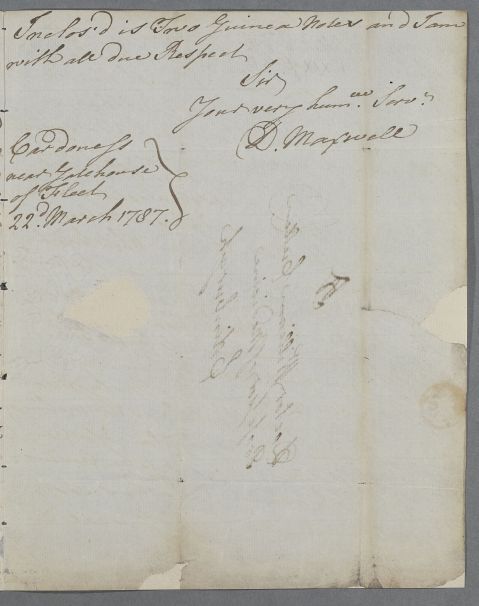 Inclos'd is Two Guinea Notes and I am
with all due Respect
Sir
Your very hum.ble Serv.t
D. Maxwell
Cardoness
near Gatehouse
of Fleet
22.d March 1787.